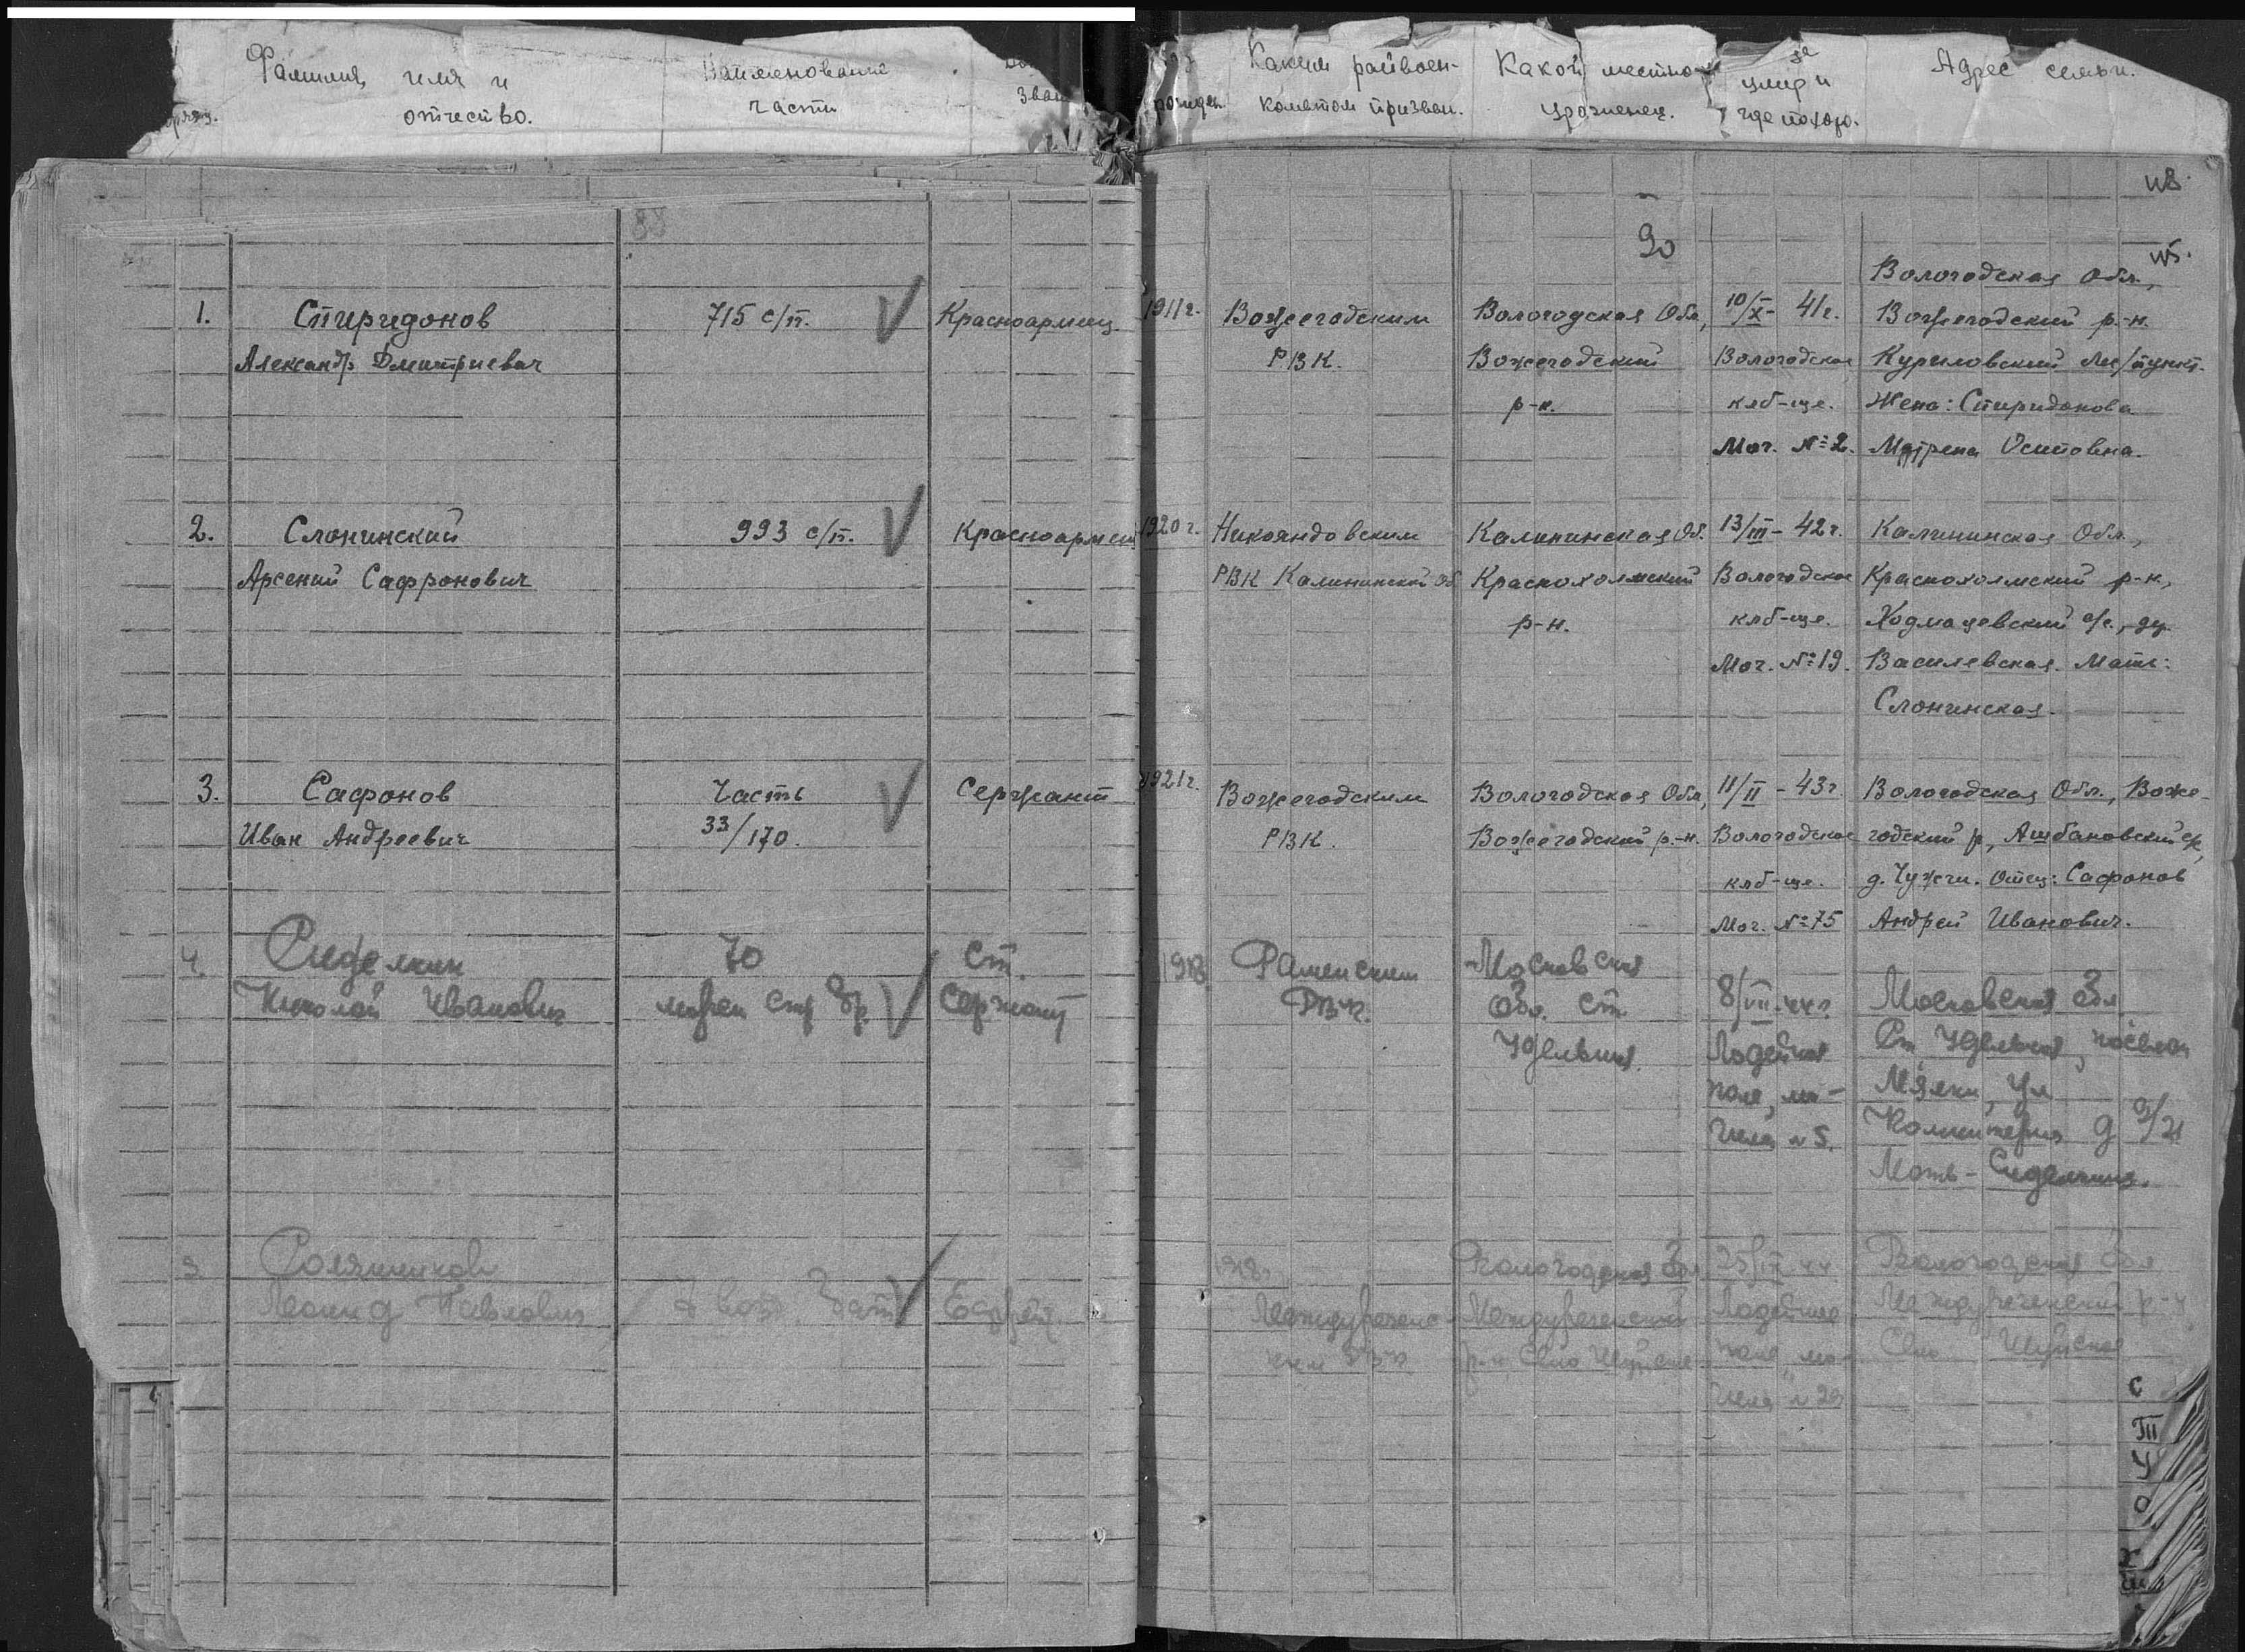 Фамилия, имя и
отчество.
Наименование
части
Каким райвоен-
коматом призван.
Какой местно-
уроженец.
умер и
где похор.
Адрес семьи.
90
1.
Спиридонов
Александр Дмитриевич
715 с/п.
Красноармеец.
1911г.
Вожегодским
РВК.
Вологодская Обл,
Вожегодский
р-н.
10/X - 41г.
Вологодское
клб-ще.
Мог. №2.
Вологодская Обл.,
Вожегодский р-н.
Куриловский Ле/пункт.
Жена: Спиридонова
Матрена Осиповна.
2.
Слонинский
Арсений Сафронович
993 с/п.
Красноармеец
1920г.
РВК Калининской Об
Калининская Об.
Краснохолмский
р-н.
13/III - 42г.
Вологодское
клб-ще.
Мог. №19.
Калининская Обл.,
Краснохолмский р-н,
с/с., де.
Василевская. Мать:
Слонинская.
3.
Сафонов
Иван Андреевич
Часть
33/170.
Сержант
1921г.
Вожегодским
РВК.
Вологодская Обл,
Вожегодский р-н.
11/II - 43г
Вологодское
клб-ще.
Мог. №75
Вологодская Обл., Воже-
годский р, Ашбановский с/с,
д. Чужги. Отец: Сафонов
Андрей Иванович.
4.
Сиделкин
Николай Иванович
70
морск стр бр.
Ст.
Сержант
1918
Раменским
РВК.
Московская
Обл. ст
Удельная.
8/VII-44г.
Лодейное
поле, мо-
гила №5.
Московская Обл
Ст Удельная, поселок
ул
Коминтерна д 9/21
Мать - Сиделкина.
Леонид Павлович
Ефрейт.
1918г
Междуреченс-
ким РВК
Вологодская Обл
Междуреченский
р-н, Село Шуйское
25/IX 44
Лодейное
поле, мо-
гила №29
Вологодская Обл
Междуреченский р-н
Село Шуйское
С
У